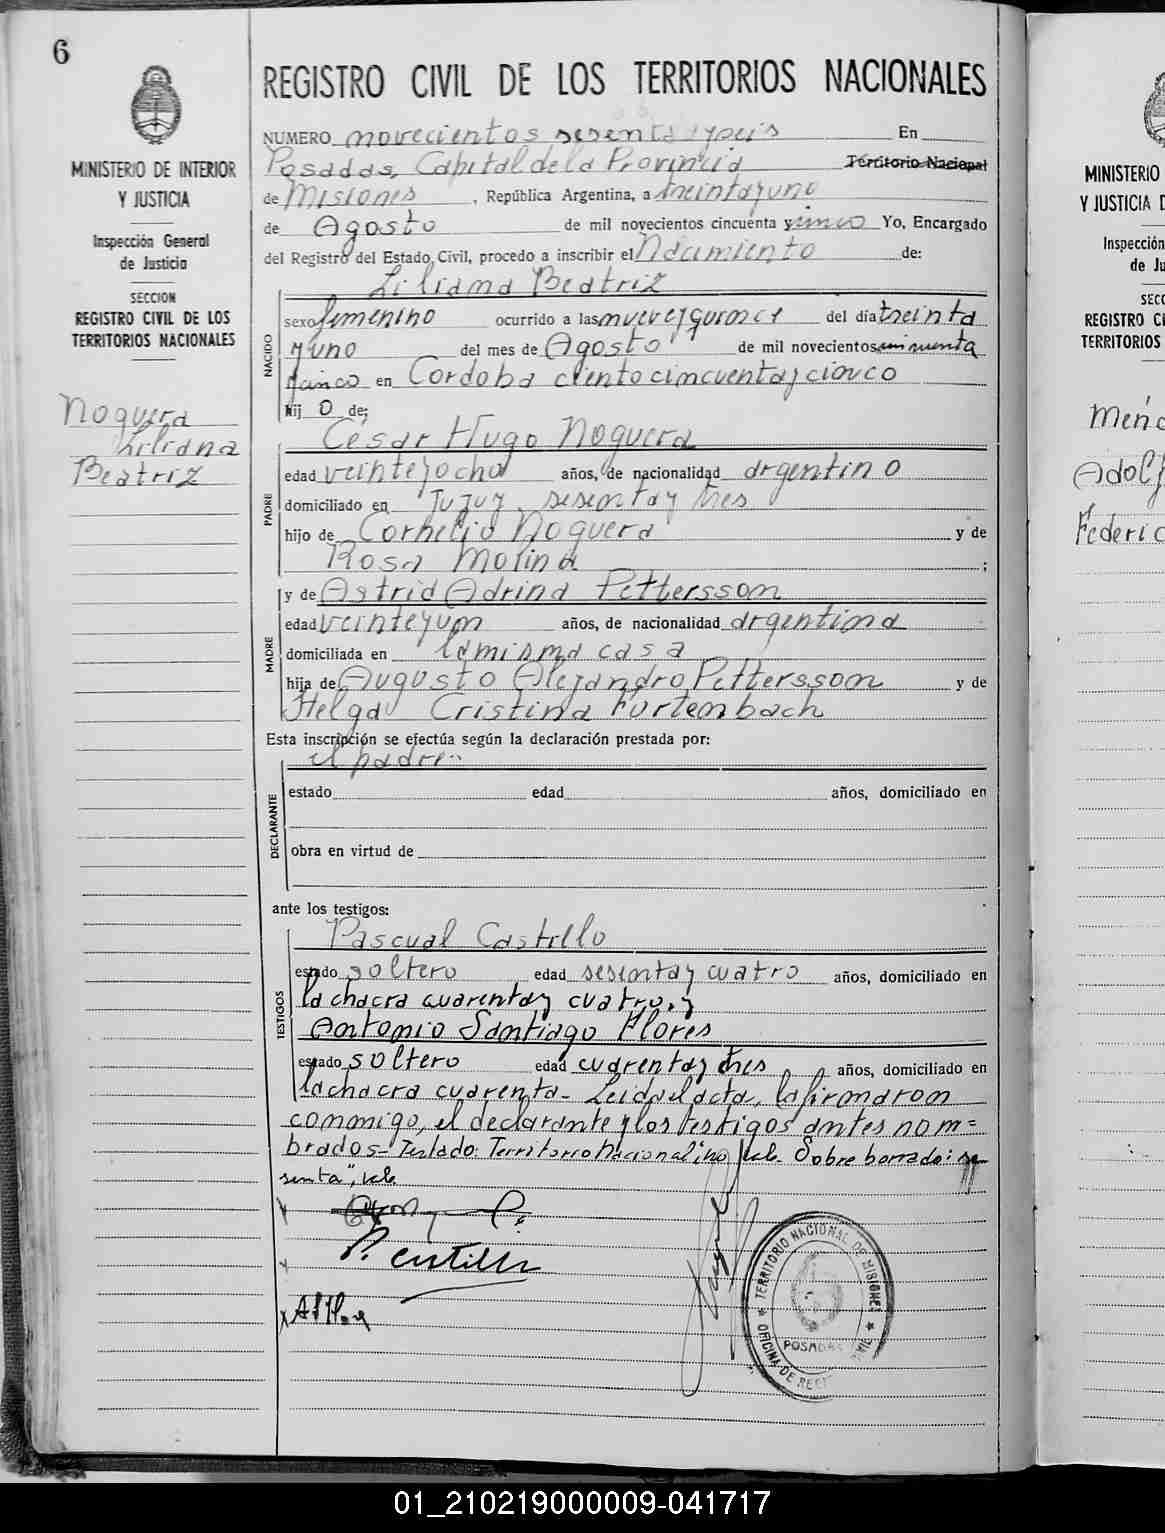 6
REGISTRO CIVIL DE LOS TERRITORIOS NACIONALES
MINISTERIO DE INTERIOR
Y JUSTICIA
Inspección General
de Justicia
SECCION
REGISTRO CIVIL DE LOS
TERRITORIOS NACIONALES
Noguera
Liliana
Beatriz
NUMERO novecientos sesenta y seis En
Posadas, Capital de la Provincia Territorio Nacional
de Misiones, República Argentina, a treinta y uno
de Agosto de mil novecientos cincuenta y cinco Yo, Encargado
del Registro del Estado Civil, procedo a inscribir el Nacimiento de:
NACIDO
Liliana Beatriz
sexo femenino ocurrido a las nueve y quince del día treinta
y uno del mes de Agosto de mil novecientos cincuenta
y cinco en Córdoba ciento cincuenta y cinco
hij o de;
PADRE
César Hugo Noguera
edad veinte y ocho años, de nacionalidad argentino
domiciliado en Jujuy sesenta y tres
hijo de Cornelio Noguera y de
Rosa Molina ;
MADRE
y de Astrid Adrina Pettersson
edad veinte y un años, de nacionalidad argentina
domiciliada en la misma casa
hija de Augusto Alejandro Pettersson y de
Helga Cristina Furtembach
Esta inscripción se efectúa según la declaración prestada por:
DECLARANTE
el padre
estado edad años, domiciliado en
obra en virtud de
ante los testigos:
TESTIGOS
Pascual Castillo
estado soltero edad sesenta y cuatro años, domiciliado en
la chacra cuarenta y cuatro, y
Antonio Santiago Flores
estado soltero edad cuarenta y tres años, domiciliado en
la chacra cuarenta - Leida el acta, la firmaron
conmigo, el declarante y los testigos antes nom=
brados - Testado: Territorio Nacional "no vale. Sobre borrado: se
senta", vale
P. Castillo
TERRITORIO NACIONAL DE MISIONES
POSADAS
OFICINA DE REGISTRO CIVIL
MINISTERIO
Y JUSTICIA D
Inspección
de Ju
SECC
REGISTRO CI
TERRITORIOS
Adolf
Federic
01_210219000009-041717